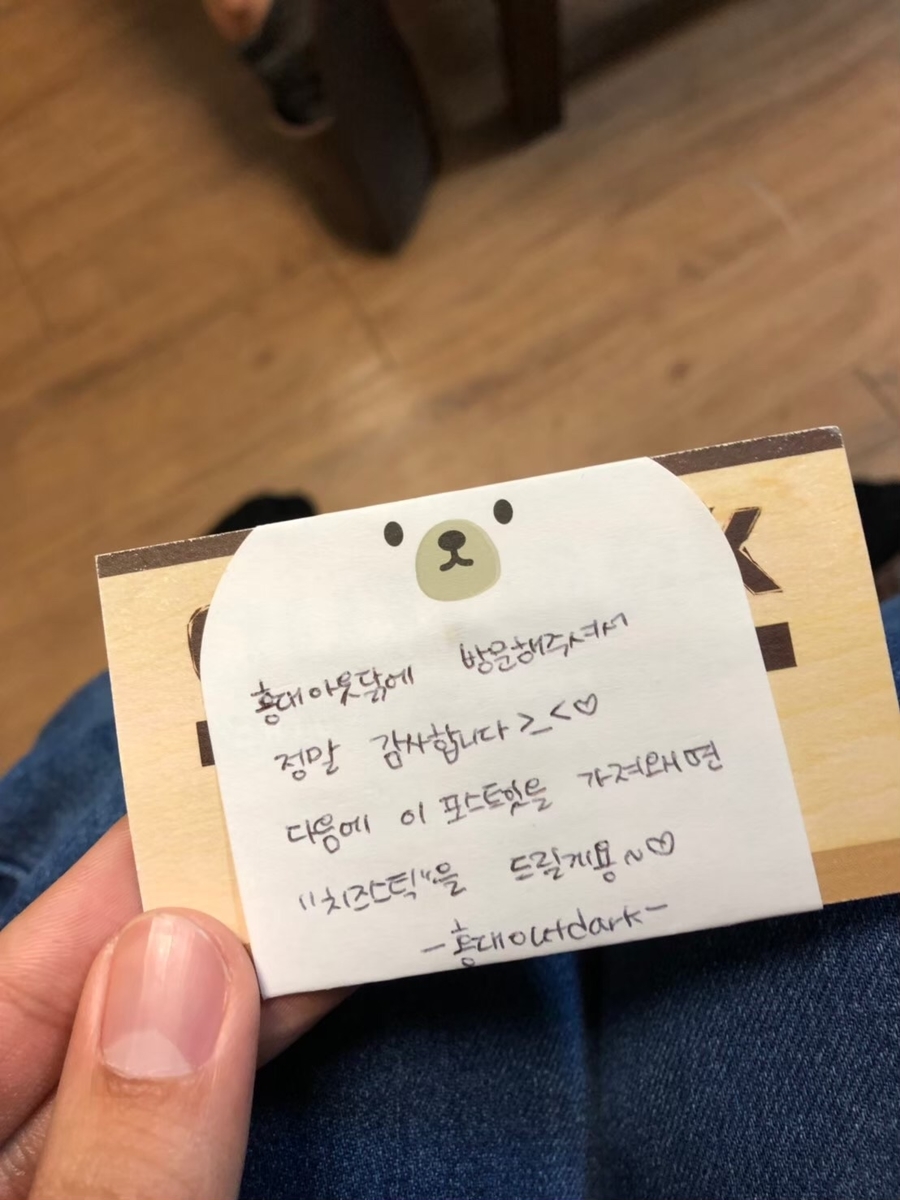 홍대아웃닭에 방문해주셔서
정말 감사합니다 >_<♡
다음에 이 포스트잇을 가져와면
"치즈스틱"을 드릴게용~♡
-홍대outdark-